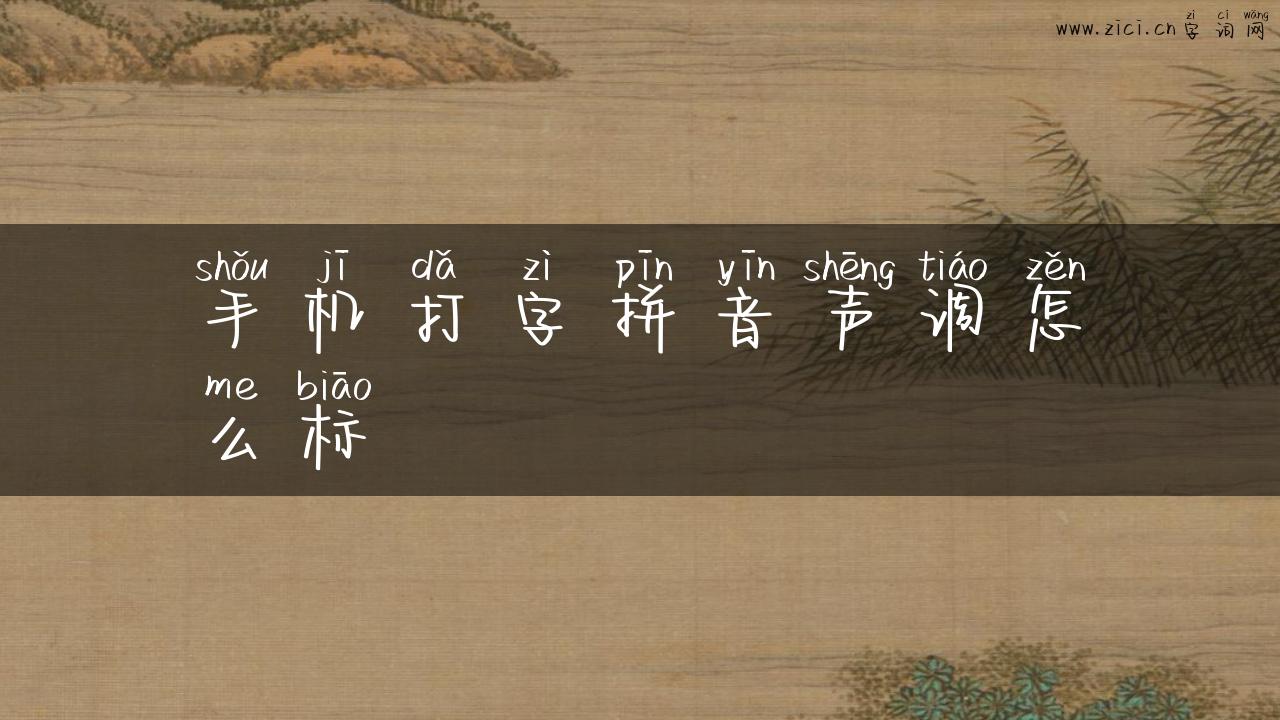 zì cí wǎng
www.zici.cn 字 词 网
shǒu jī dǎ zì pīn yīn shēng tiáo zěn
手 机 打 字 拼 音 声 调 怎
me biāo
么 标